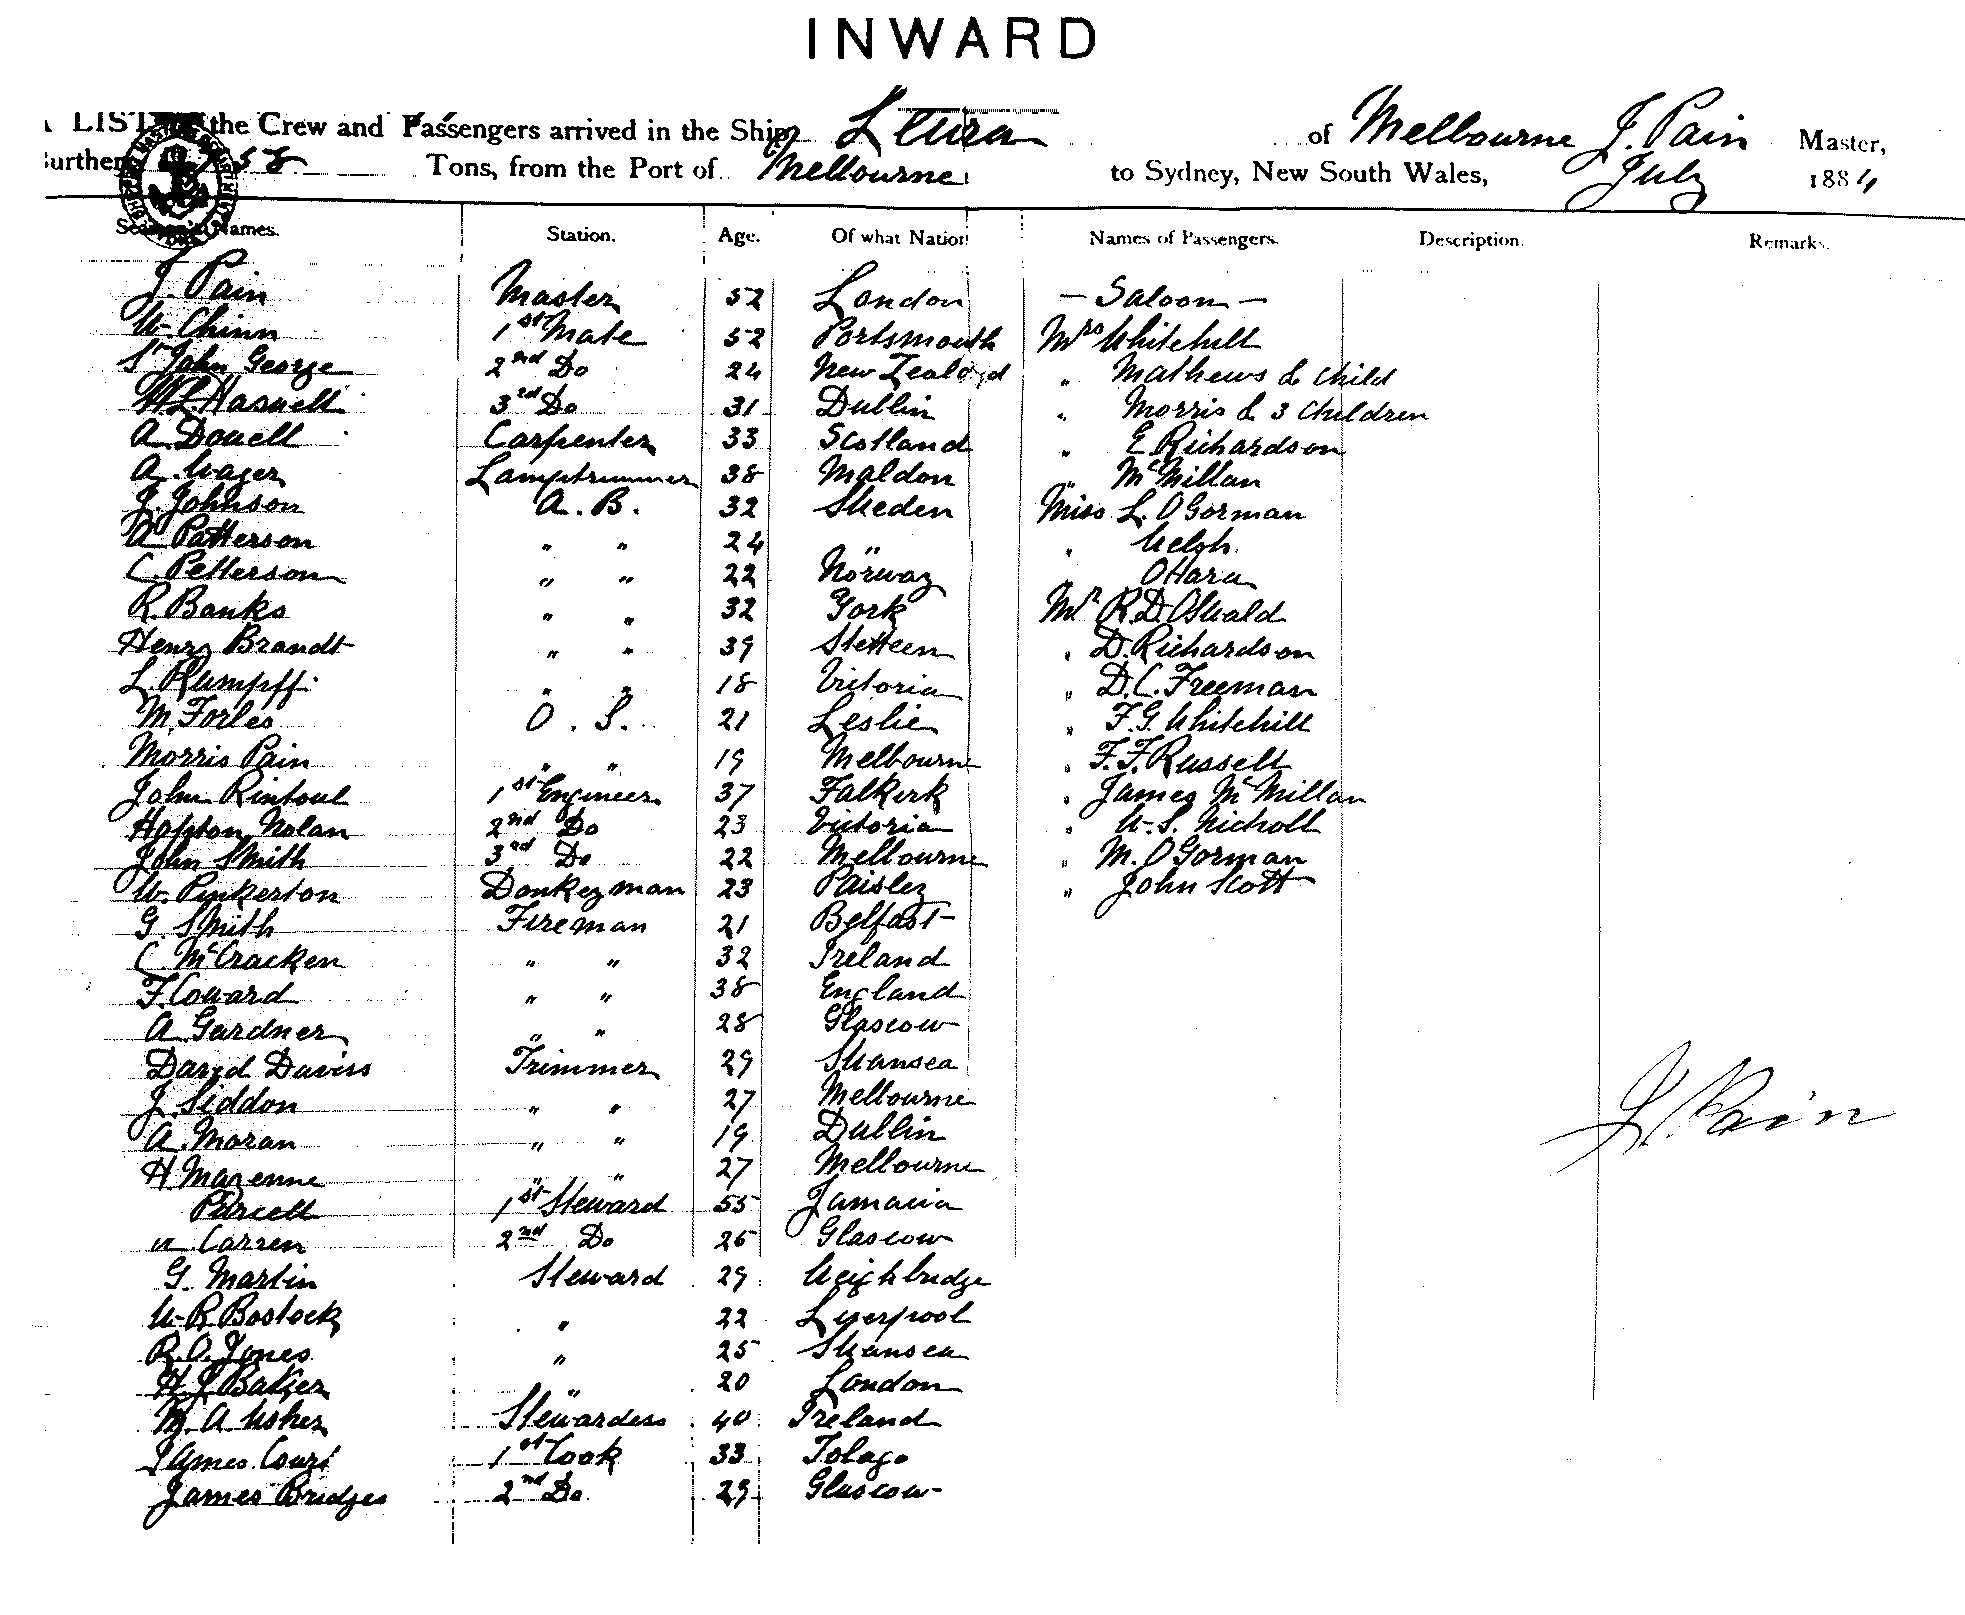 INWARD
LIST the Crew and Passengers arrived in the Ship Leura of Melbourne J. Pain Master,
Burthen 58 Tons, from the Port of Melbourne to Sydney, New South Wales, July 1884
Seamen's Names. Station. Age. Of what Nation Names of Passengers. Description. Remarks.
J. Pain Master 52 London — Saloon —
W. Chinn 1st Mate 52 Portsmouth Mrs Whitehill
St John George 2nd Do 24 New Zealand " Mathews & Child
W L Haswell 3rd Do 31 Dublin " Morris & 3 Children
A. Dowell Carpenter 33 Scotland " E Richardson
A. Wager Lamptrimmer 38 Maldon " McMillan
J. Johnson A. B. 32 Sweden Miss L. OGorman
A Patterson " " 24 " " Welsh
C. Petterson " " 22 Norway " OHara
R. Banks " " 32 York Mr R D. Oswald
Henry Brandt " " 39 Stetteen " D. Richardson
L. Rumpff " " 18 Victoria " D. C. Freeman
M. Forles O. S. 21 Leslie " F. G. Whitehill
Morris Pain " " 19 Melbourne " F. F. Russell
John Rintoul 1st Engineer 37 Falkirk " James McMillan
Hopton Nolan 2nd Do 23 Victoria " W. S. Nicholl
John Smith 3rd Do 22 Melbourne " M. OGorman
W. Pinkerton Donkeyman 23 Paisley " John Scott
G. Smith Fireman 21 Belfast
C McCracken " " 32 Ireland
F. Coward " " 38 England
A Gardner " " 28 Glascow
David Daviss Trimmer 29 Swansea
J. Siddon " " 27 Melbourne
A. Moran " " 19 Dublin J. Pain
H Marenne " " 27 Melbourne
Purcell 1st Steward 55 Jamaica
Carren 2nd Do 26 Glascow
G. Martin Steward 29 Weighbridge
W. R Bostock " 22 Liverpool
R. O. Jones " 25 Swansea
H J Barger " 20 London
M. A Usher Stewardess 40 Ireland
James Court 1st Cook 33 Tobago
James Bridges 2nd Do 29 Glascow